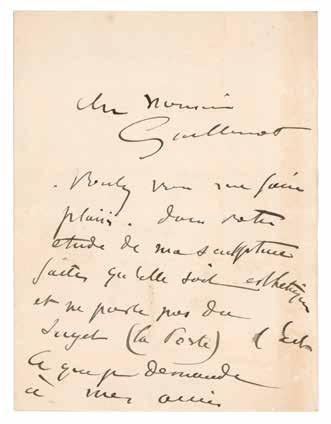 cher Monsieur
Guillemot
. Voulez vous me faire
plaisir. dans votre
étude de ma sculpture
faites qu'elle soit esthétique
et ne parle pas du
sujet (la Porte)
ce que je demande
à mes amis